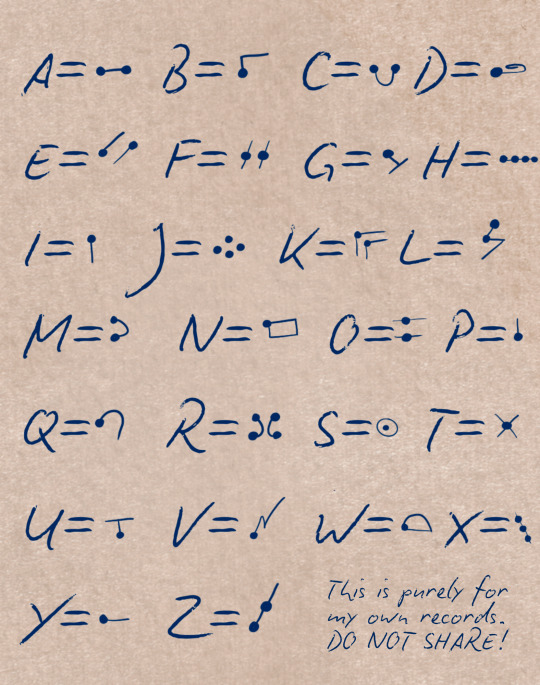 A= B= C= D=
E= F= G= H=
I= J= K= L=
M= N= O= P=
Q= R= S= T=
U= V= W= X=
Y= Z=
This is purely for
my own records.
DO NOT SHARE!